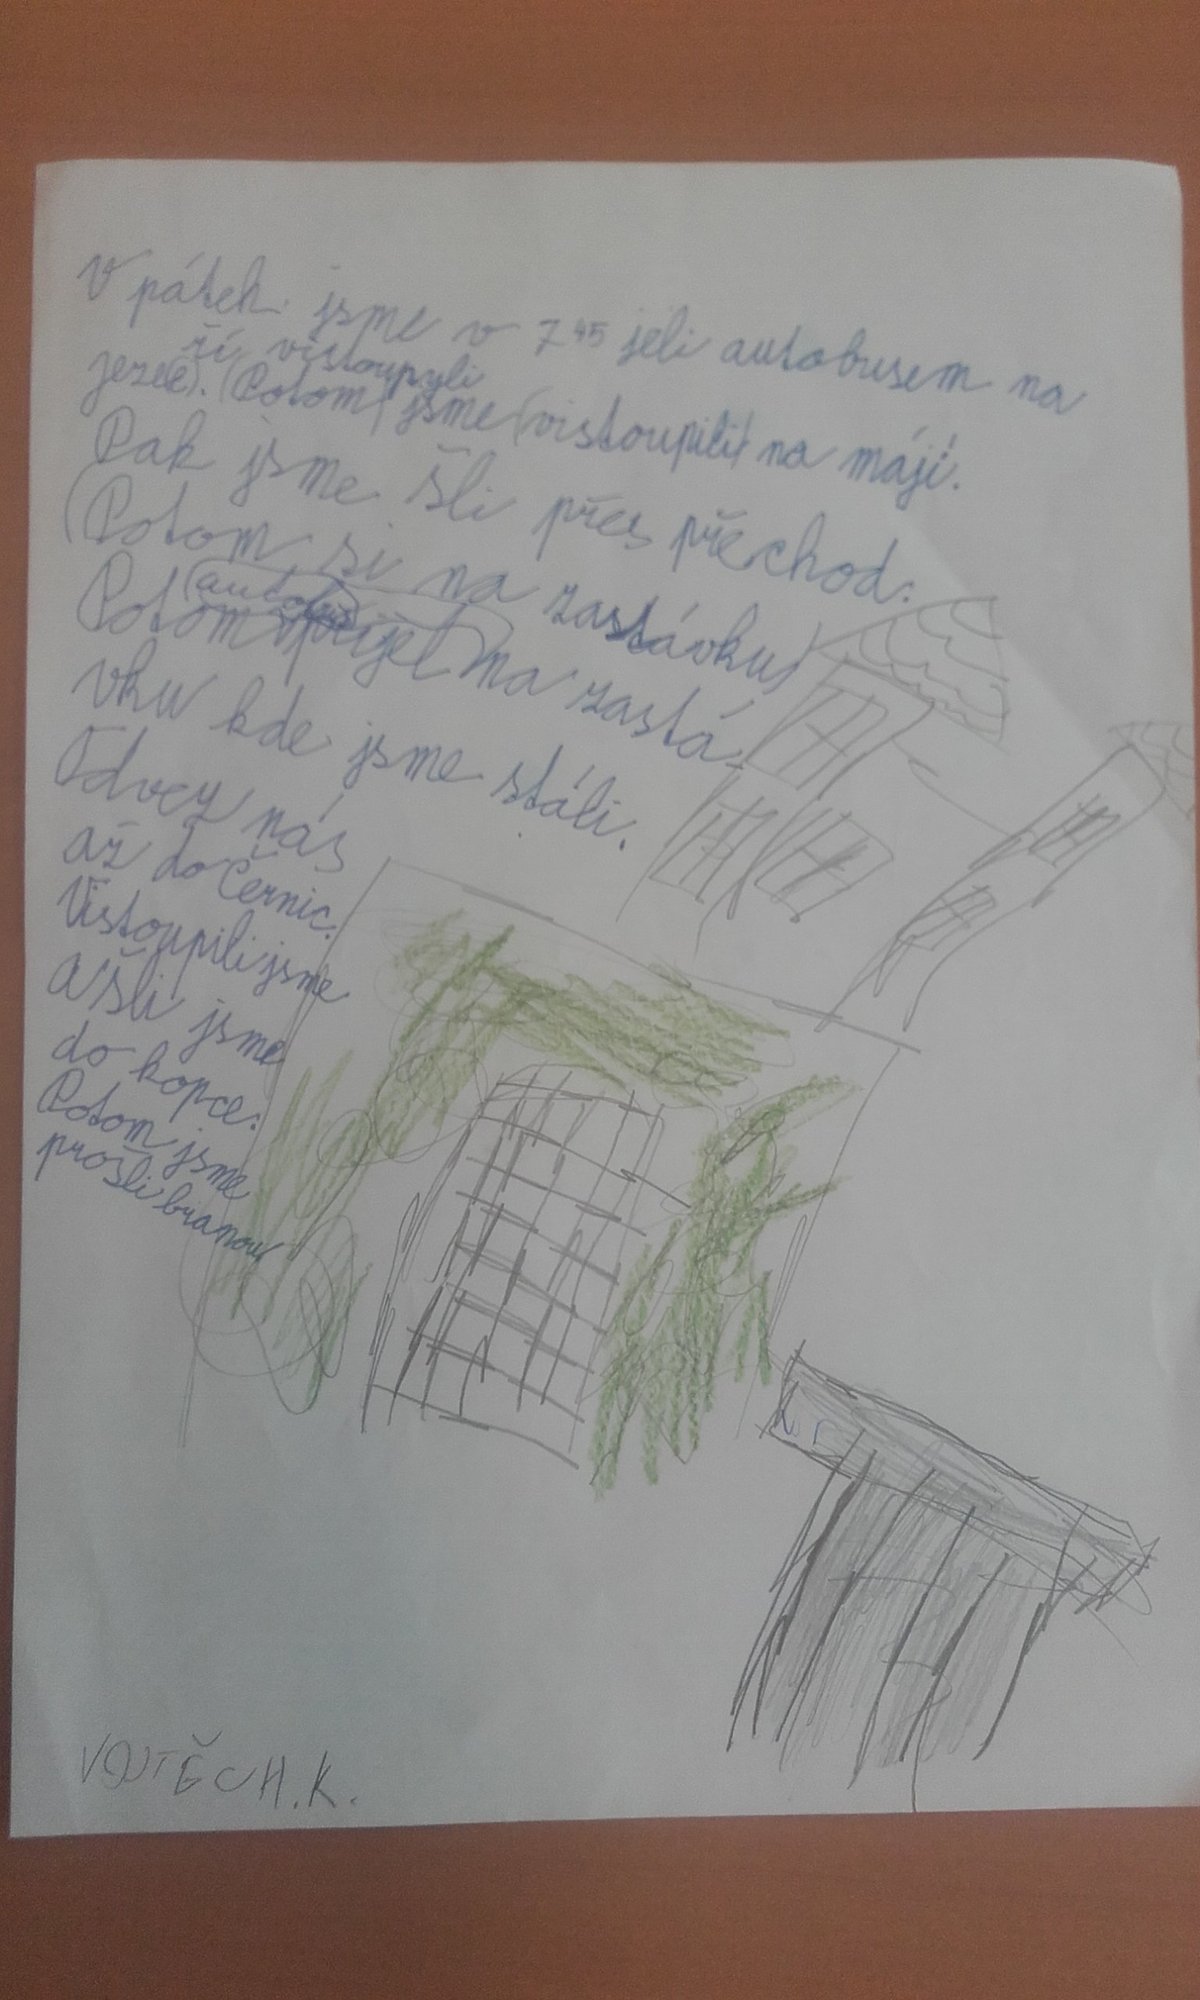 V pátek jsme v 7 45 jeli autobusem na
ří vistoupyli
jeze(e). (Potom) jsme (vistoupili) na máji.
Pak jsme šli přes přechod.
(Potom si na zastávku)
autobu
Potom přijel na zastá-
vku kde jsme stáli.
Odvez nás
až do Černic.
Vistoupili jsme
a šli jsme
do kopce.
Potom jsme
prošli branou
VOJTĚCH.K.